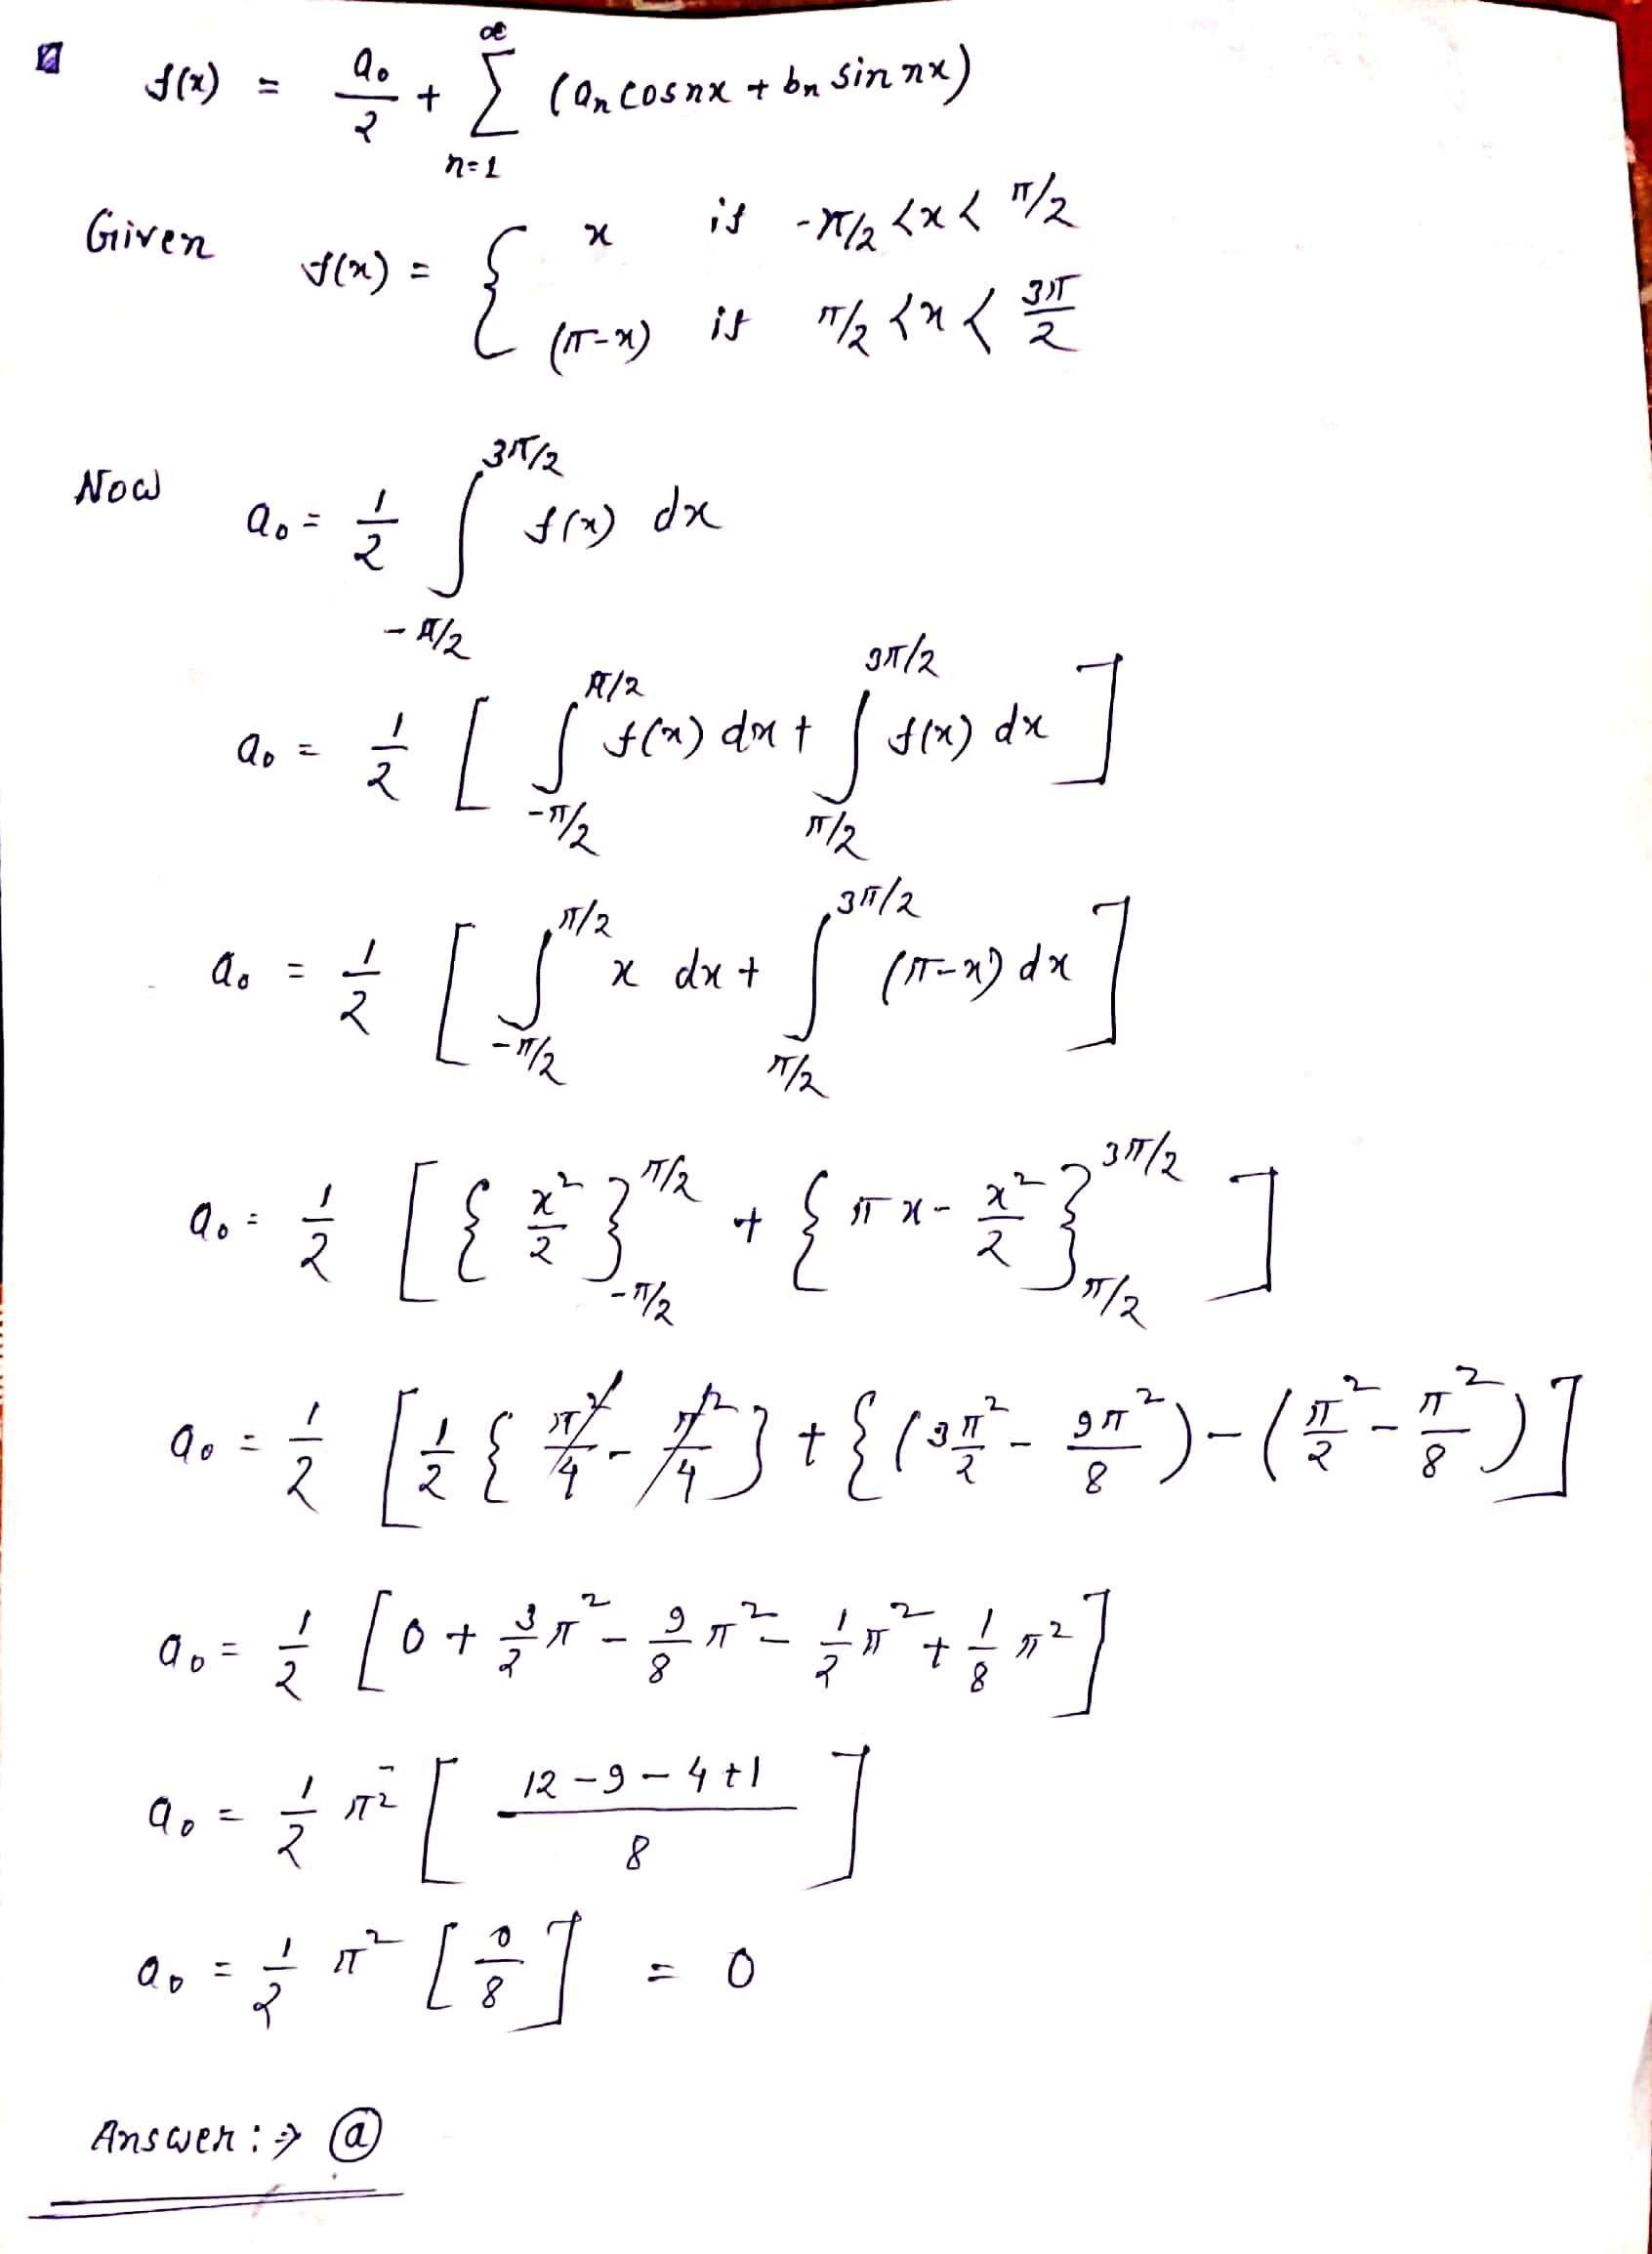 f(x) = a₀/2 + ∑_{n=1}^{∞} (aₙ cos nx + bₙ sin nx)
Given f(x) = { x if -π/2 < x < π/2
(π-x) if π/2 < x < 3π/2
Now a₀ = 1/2 ∫_{-π/2}^{3π/2} f(x) dx
a₀ = 1/2 [ ∫_{-π/2}^{π/2} f(x) dx + ∫_{π/2}^{3π/2} f(x) dx ]
a₀ = 1/2 [ ∫_{-π/2}^{π/2} x dx + ∫_{π/2}^{3π/2} (π-x) dx ]
a₀ = 1/2 [ { x²/2 }_{-π/2}^{π/2} + { πx - x²/2 }_{π/2}^{3π/2} ]
a₀ = 1/2 [ 1/2 { π²/4 - π²/4 } + { (3π²/2 - 9π²/8) - (π²/2 - π²/8) ]
a₀ = 1/2 [ 0 + 3/2 π² - 9/8 π² - 1/2 π² + 1/8 π² ]
a₀ = 1/2 π² [ (12 - 9 - 4 + 1)/8 ]
a₀ = 1/2 π² [ 0/8 ] = 0
Answer :⇒ ⓐ